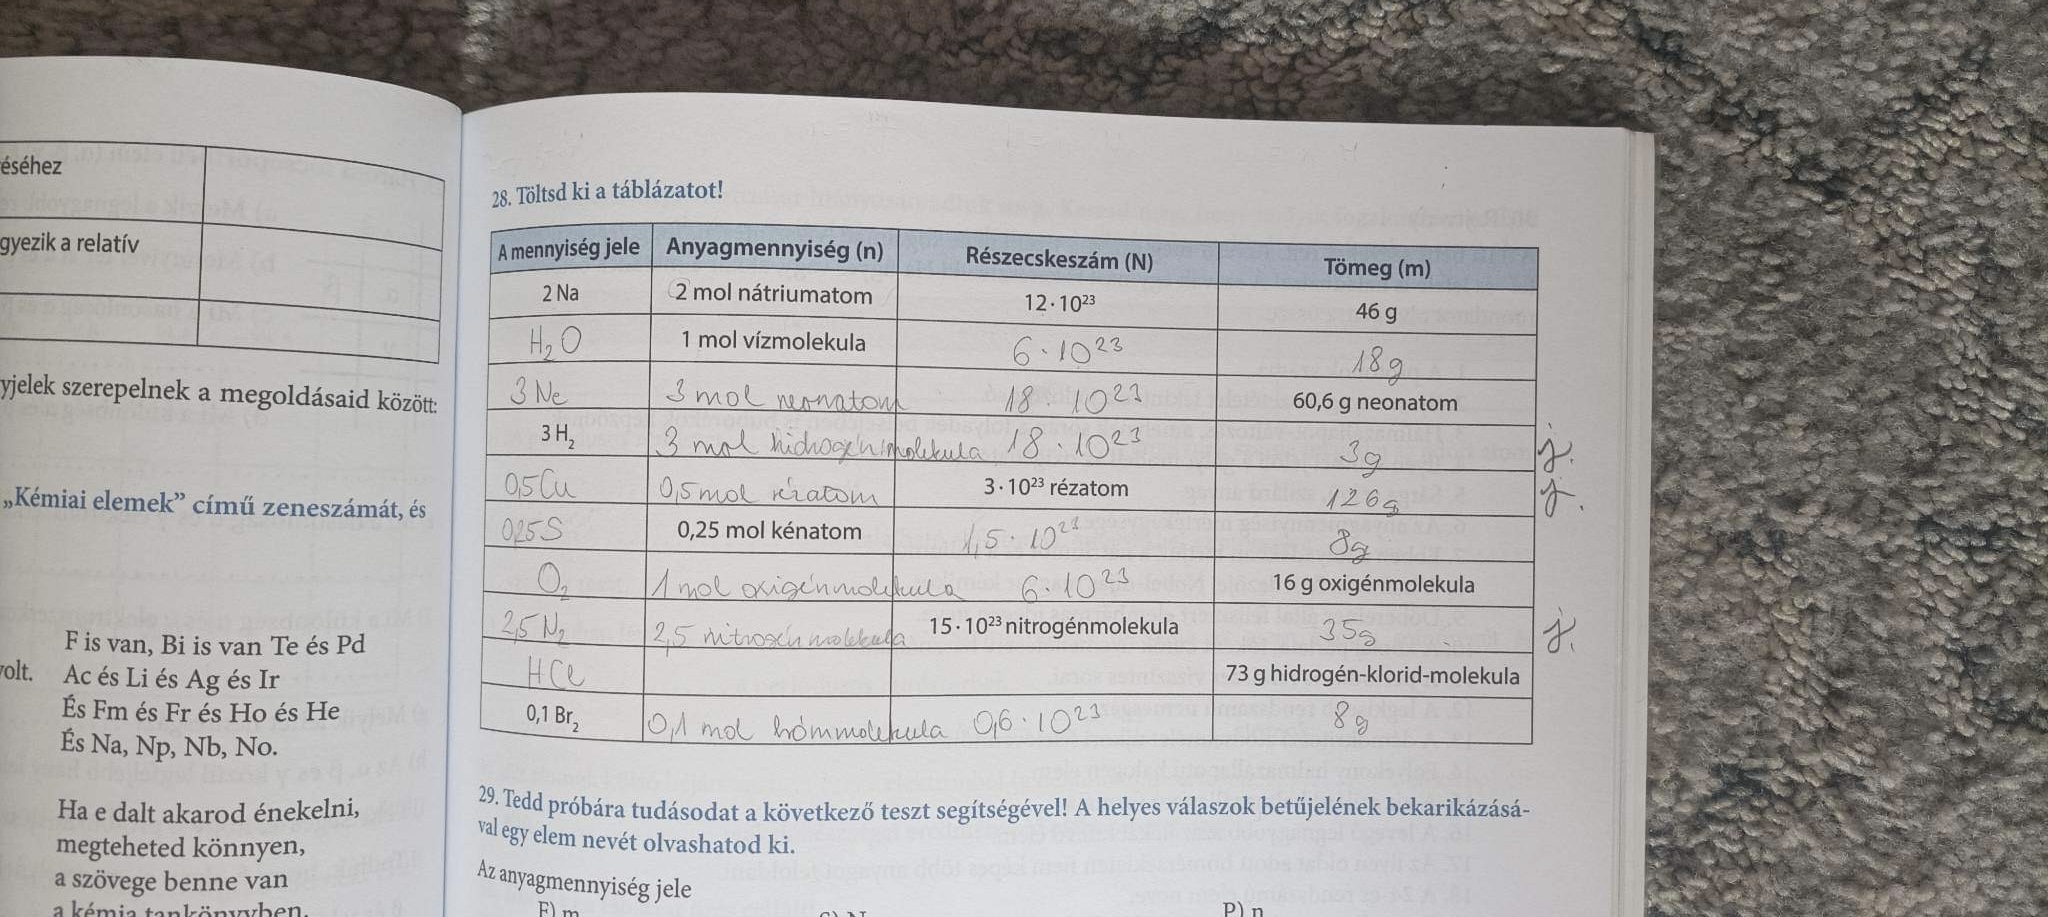 éséhez
gyezik a relatív
yjelek szerepelnek a megoldásaid között:
„Kémiai elemek” című zeneszámát, és
F is van, Bi is van Te és Pd
volt. Ac és Li és Ag és Ir
És Fm és Fr és Ho és He
És Na, Np, Nb, No.
Ha e dalt akarod énekelni,
megteheted könnyen,
a szövege benne van
a kémia tankönyvben.
28. Töltsd ki a táblázatot!
A mennyiség jele Anyagmennyiség (n) Részecskeszám (N) Tömeg (m)
2 Na 2 mol nátriumatom 12·10²³ 46 g
H₂O 1 mol vízmolekula 6·10²³ 18g
3 Ne 3 mol neonatom 18·10²³ 60,6 g neonatom
3 H₂ 3 mol hidrogénmolekula 18·10²³ 3g j.
0,5 Cu 0,5 mol rézatom 3·10²³ rézatom 126g j.
0,25 S 0,25 mol kénatom 1,5·10²³ 8g
O₂ 1 mol oxigénmolekula 6·10²³ 16 g oxigénmolekula
2,5 N₂ 2,5 nitrogénmolekula 15·10²³ nitrogénmolekula 35g j.
HCl 73 g hidrogén-klorid-molekula
0,1 Br₂ 0,1 mol brómmolekula 0,6·10²³ 8g
29. Tedd próbára tudásodat a következő teszt segítségével! A helyes válaszok betűjelének bekarikázásá-
val egy elem nevét olvashatod ki.
Az anyagmennyiség jele
F) m P) n